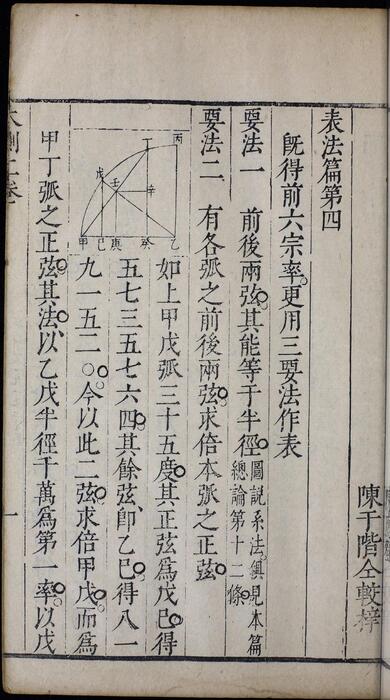 表法篇第四
陳于階仝較梓
既得前六宗率。更用三要法作表
要法一 前後兩弦。其能等于半徑。
圖說系法。俱見本篇
總論第十二條。
要法二 有各弧之前後兩弦。求倍本弧之正弦。
如上甲戊弧三十五度。其正弦爲戊己。得
五七三五七六四。其餘弦。即乙己。得八一
九一五二〇。今以此二弦。求倍甲戊。而爲
甲丁弧之正弦。其法。以乙戊半徑千萬爲第一率。以戊
丙
丁
戊
壬
辛
甲 己 庚 癸 乙
一